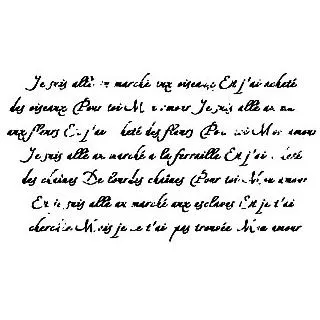 Je suis allé au marché aux oiseaux Et j'ai acheté
des oiseaux Pour toi Mon amour Je suis allé au
aux fleurs Et j'ai acheté des fleurs Pour toi Mon amour
Je suis allé au marché a la ferraille Et j'ai acheté
des chaînes De lourdes chaînes Pour toi Mon amour
Et je suis allé au marché aux esclaves Et je t'ai
cherchée Mais je ne t'ai pas trouvée Mon amour